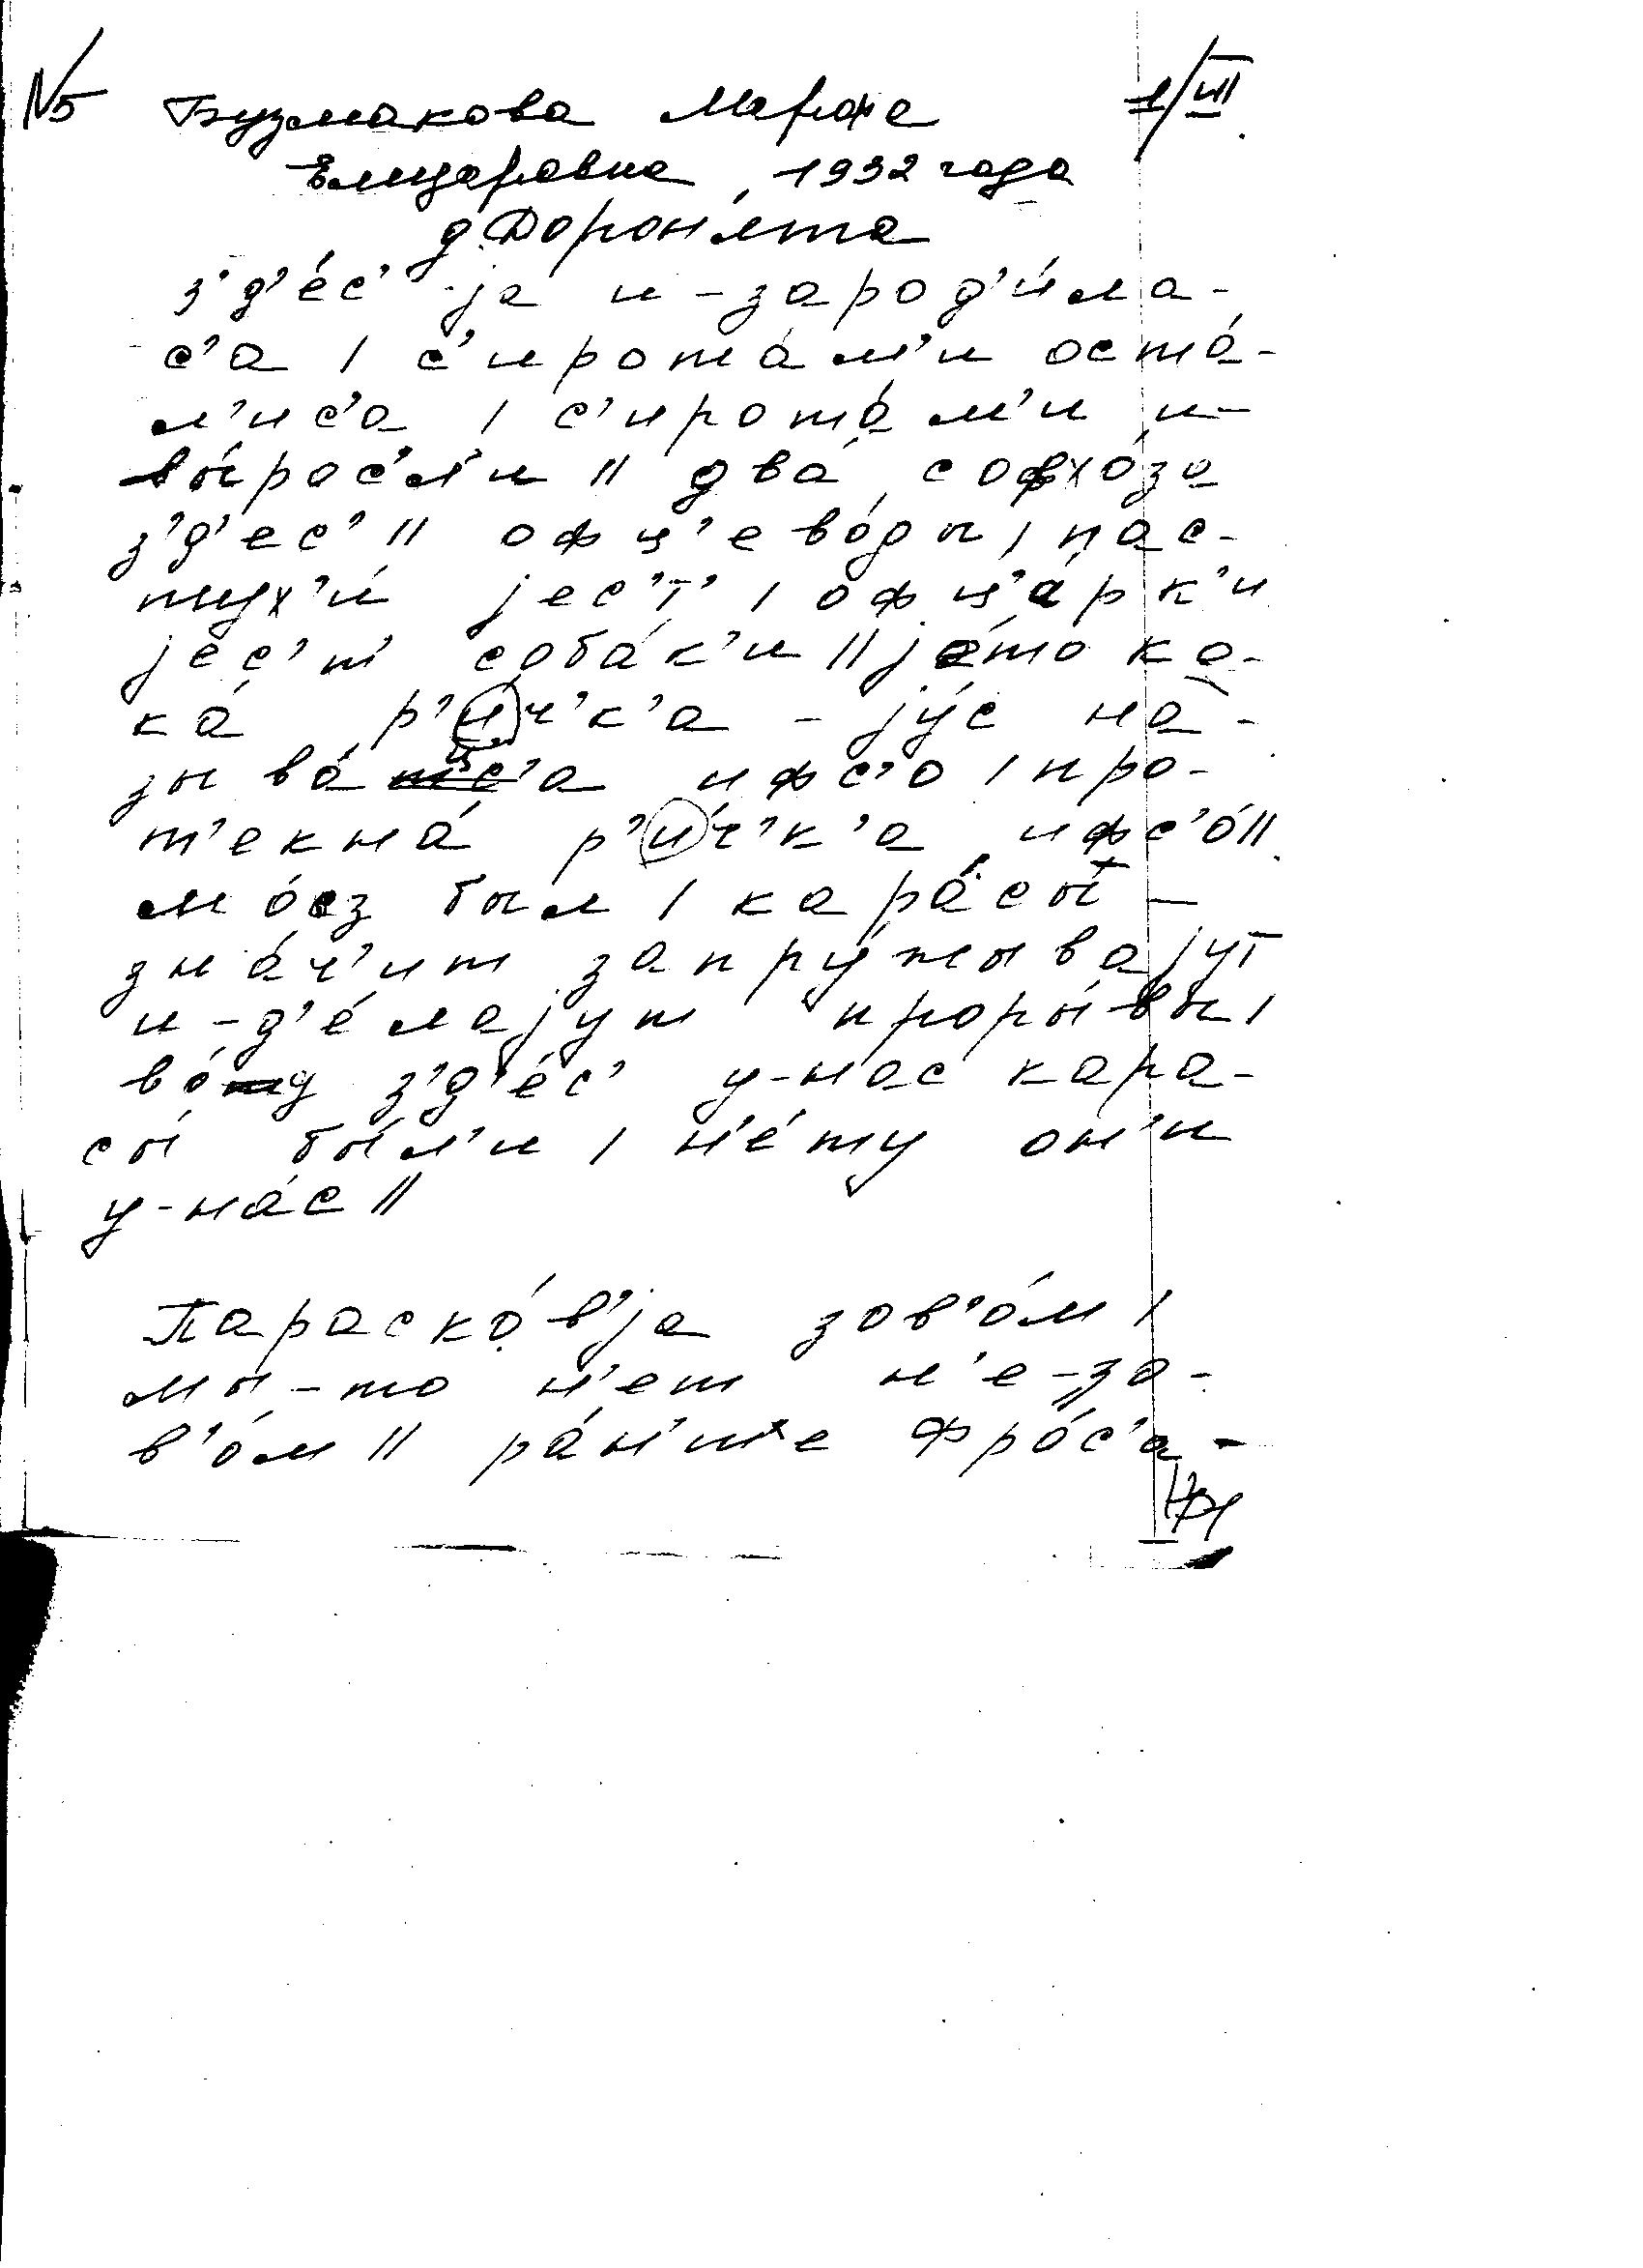 №5 Бузмакова Марфа 1/VII
Елизаровна, 1932 года
д. Доронята
з’д’éс’ jа и-зарод’и́ла-
с’а / с’иротáм’и остá-
л’ис’а / с’иротáм’и и-
вы́рос’л’и // двá софхóза
з’д’ес’ // офц’евóды / пас-
тух’и́ jес’т’ / офц’áрк’и
jéс’т’ собáк’и // jéто ка-
кá р’и́ч’к’а – jýс на-
зывáца ифс’о / про-
т’екнá р’и́ч’к’а ифс’ó //
мóз был / карáсы –
знáч’ит запрýжывajут
и-д’éлаjут проры́вы /
вóд з’д’éс’ у-нас кара-
сы́ бы́л’и / н’éту он’и
у-нáс //
Параскóв’jа зов’óм /
мы́-то н’ет н’е-зо-
в’óм // рáн’ше Фрóс’а –